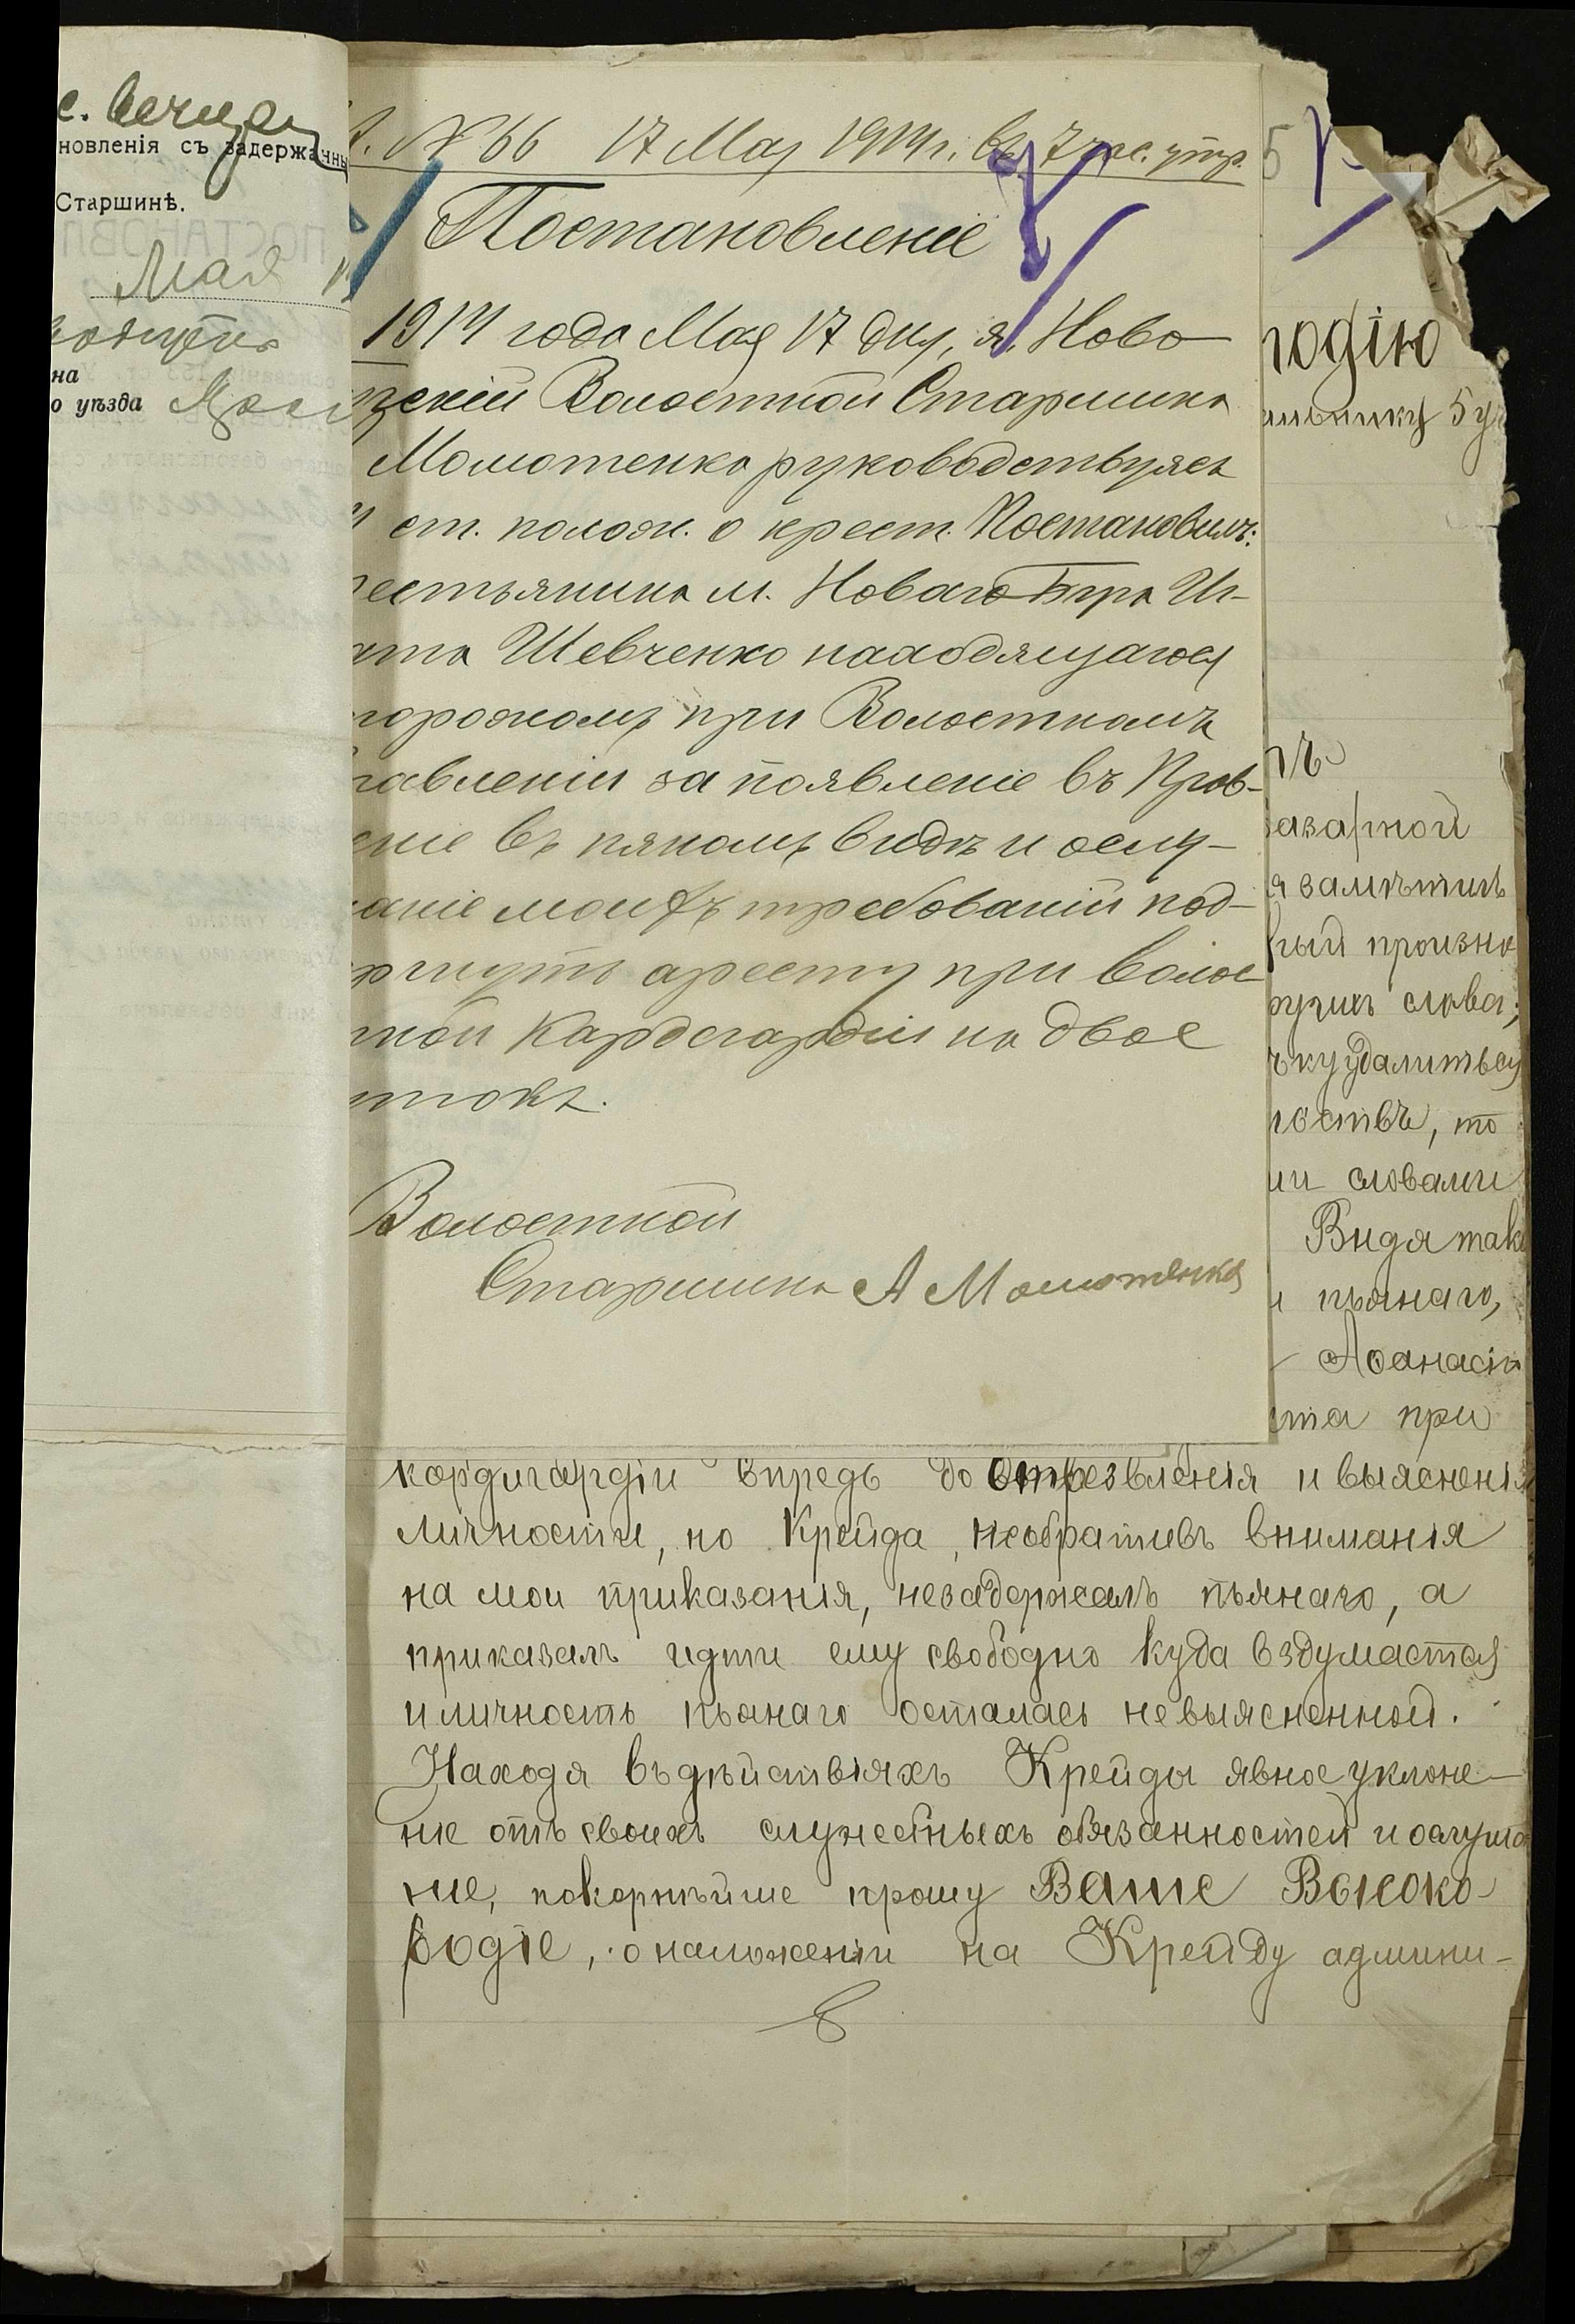 с. вечера
новленія съ задержанны
Старшинѣ.
Мая
на
о уѣзда
№ 66 17 Мая 1914 г. въ 7 час. утр.
Постановленіе
1914 года Мая 17 дня, я, Ново-
скій Волостной Старшина
Молотенко руководствуясь
ст. полож. о крест. Постановилъ:
естьянина м. Новаго Буга Иг-
ата Шевченко находящагося
сторожомъ при Волостномъ
равленіи за появленіе въ Прав-
еніе въ пяномъ видѣ и ослу-
аніе моихъ требованій под-
ергнуть аресту при волос-
тной Кардегардіи на двое
утокъ.
Волостной
Старшина А Молотенко
родію
альнику 5 уч
тъ
базарной
я замѣтилъ
рый произно
ругих слова;
ку удалиться
ностве, то
ми словами
Видя тако
и пьянаго,
Аѳанасія
ста при
кордигардіи впредь до вытрезвленія и выясненія
личности, но Крейда, необративъ вниманія
на мои приказанія, незадержалъ пьянаго, а
приказалъ идти ему свободно куда вздумается
и личность пьянаго осталась невыясненной.
Находя въ дѣйствіяхъ Крейды явное уклоне-
ніе отъ своихъ служебныхъ обязанностей и ослуша
ніе, покорнѣйше прошу Ваше Высоко-
родіе, о наложеніи на Крейду админи-